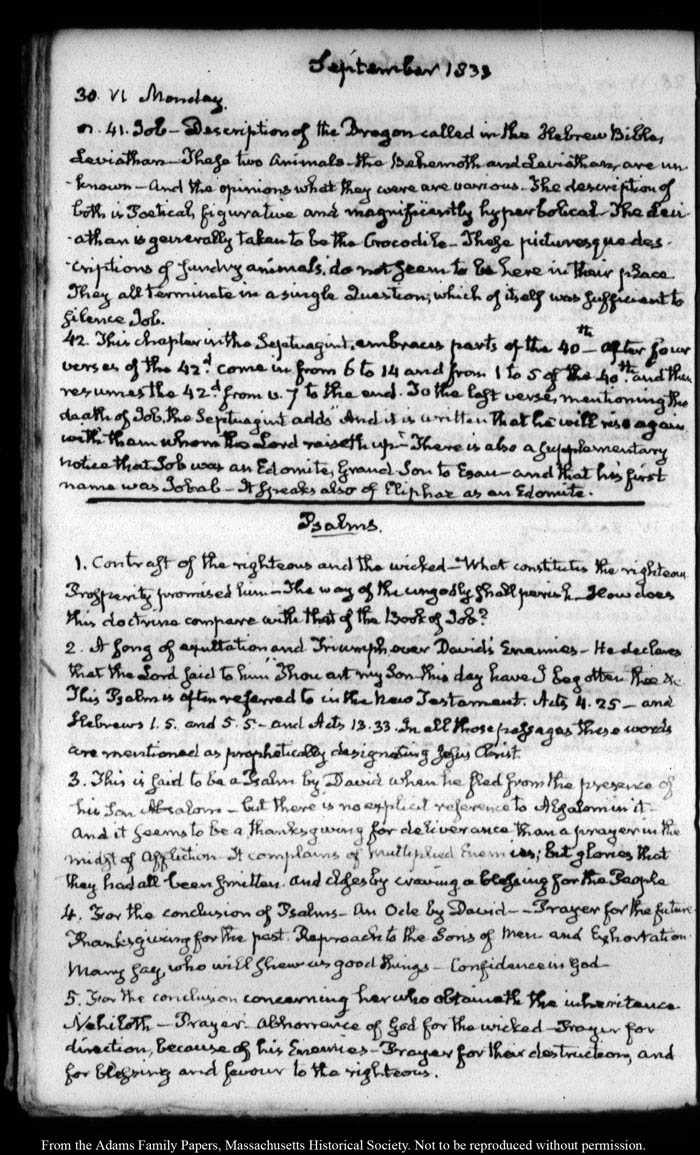 September 1833
30. VI Monday.
41. Job – Description of the Dragon called in the Hebrew Bible,
Leviathan – These two animals – the Behemoth and Leviathan, are un
-known – And the opinions what they were are various – The description of
both is Poetical, figurative and magnificently hyperbolical – The Levi
-athan is generally taken to be the Crocodile – These picturesque des-
-criptions of sundry animals, do not seem to be here in their place
They all terminate in a single Question, which of itself was sufficient to
silence Job.
42. This chapter in the Septuagint, embraces parts of the 40th – after four
verses of the 42d come in from 6 to 14 and from 1 to 5 of the 40th and then
resumes the 42d from v. 7 to the end. To the last verse, mentioning the
death of Job, the Septuagint adds "And it is written that he will rise again
with them whom the Lord raiseth up" – There is also a supplementary
notice that Job was an Edomite, Grand Son to Esau – and that his first
name was Jobab – It speaks also of Eliphaz as an Edomite.
Psalms.
1. Contrast of the righteous and the wicked – What constitutes the righteous
Prosperity promised him – The way of the ungodly shall perish – How does
this doctrine compare with that of the Book of Job?
2. A Song of exultation and Triumph, over David's Enemies – He declares
that the Lord said to him "Thou art my Son this day have I begotten thee &c
This Psalm is often referred to in the New Testament. Acts 4. 25 – and
Hebrews 1. 5. and 5. 5 – and Acts 13. 33. In all those passages these words
are mentioned as prophetically designating Jesus Christ.
3. This is said to be a Psalm by David when he fled from the presence of
his Son Absalom – but there is no explicit reference to Absalom in it –
And it seems to be a thanksgiving for deliverance than a prayer in the
midst of affliction – It complains of multiplied Enemies; but glories that
they had all been smitten. and closes by craving a blessing for the People
4. For the conclusion of Psalms – An Ode by David – Prayer for the future
Thanksgiving for the past. Reproach to the Sons of Men and Exhortation
Many say, who will shew us good things – Confidence in God –
5. For the conclusion concerning her who obtaineth the inheritance
Nehiloth – Prayer – Abhorrence of God for the wicked – Prayer for
direction, because of his Enemies – Prayer for their destruction, and
for blessing and favour to the righteous.
From the Adams Family Papers, Massachusetts Historical Society. Not to be reproduced without permission.